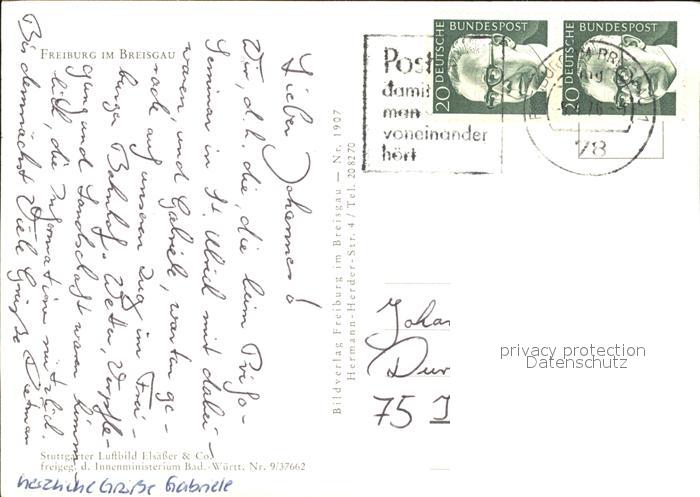 FREIBURG IM BREISGAU
Lieber Johannes!
Wir, d.h. die, die beim Prigo-
Seminar in St. Ulrich mit dabei
waren, und Gabriele, warten ge-
rade auf unseren Zug im Frei-
burger Bahnhof. Wetter, Verpfle-
gung und Landschaft waren
lich, die Informationen nützlich.
Bis demnächst Viele Grüße Dietmar
herzliche Grüße Gabriele
Stuttgarter Luftbild Elsäßer & Co.
freigeg. d. Innenministerium Bad.-Württ. Nr. 9/37662
Bildverlag Freiburg im Breisgau — Nr. 1907
Hermann-Herder-Str. 4 / Tel. 208270
Post
damit
man
voneinander
hört
20 DEUTSCHE BUNDESPOST
20 DEUTSCHE BUNDESPOST
78
Joha
Dur
75
privacy protection
Datenschutz